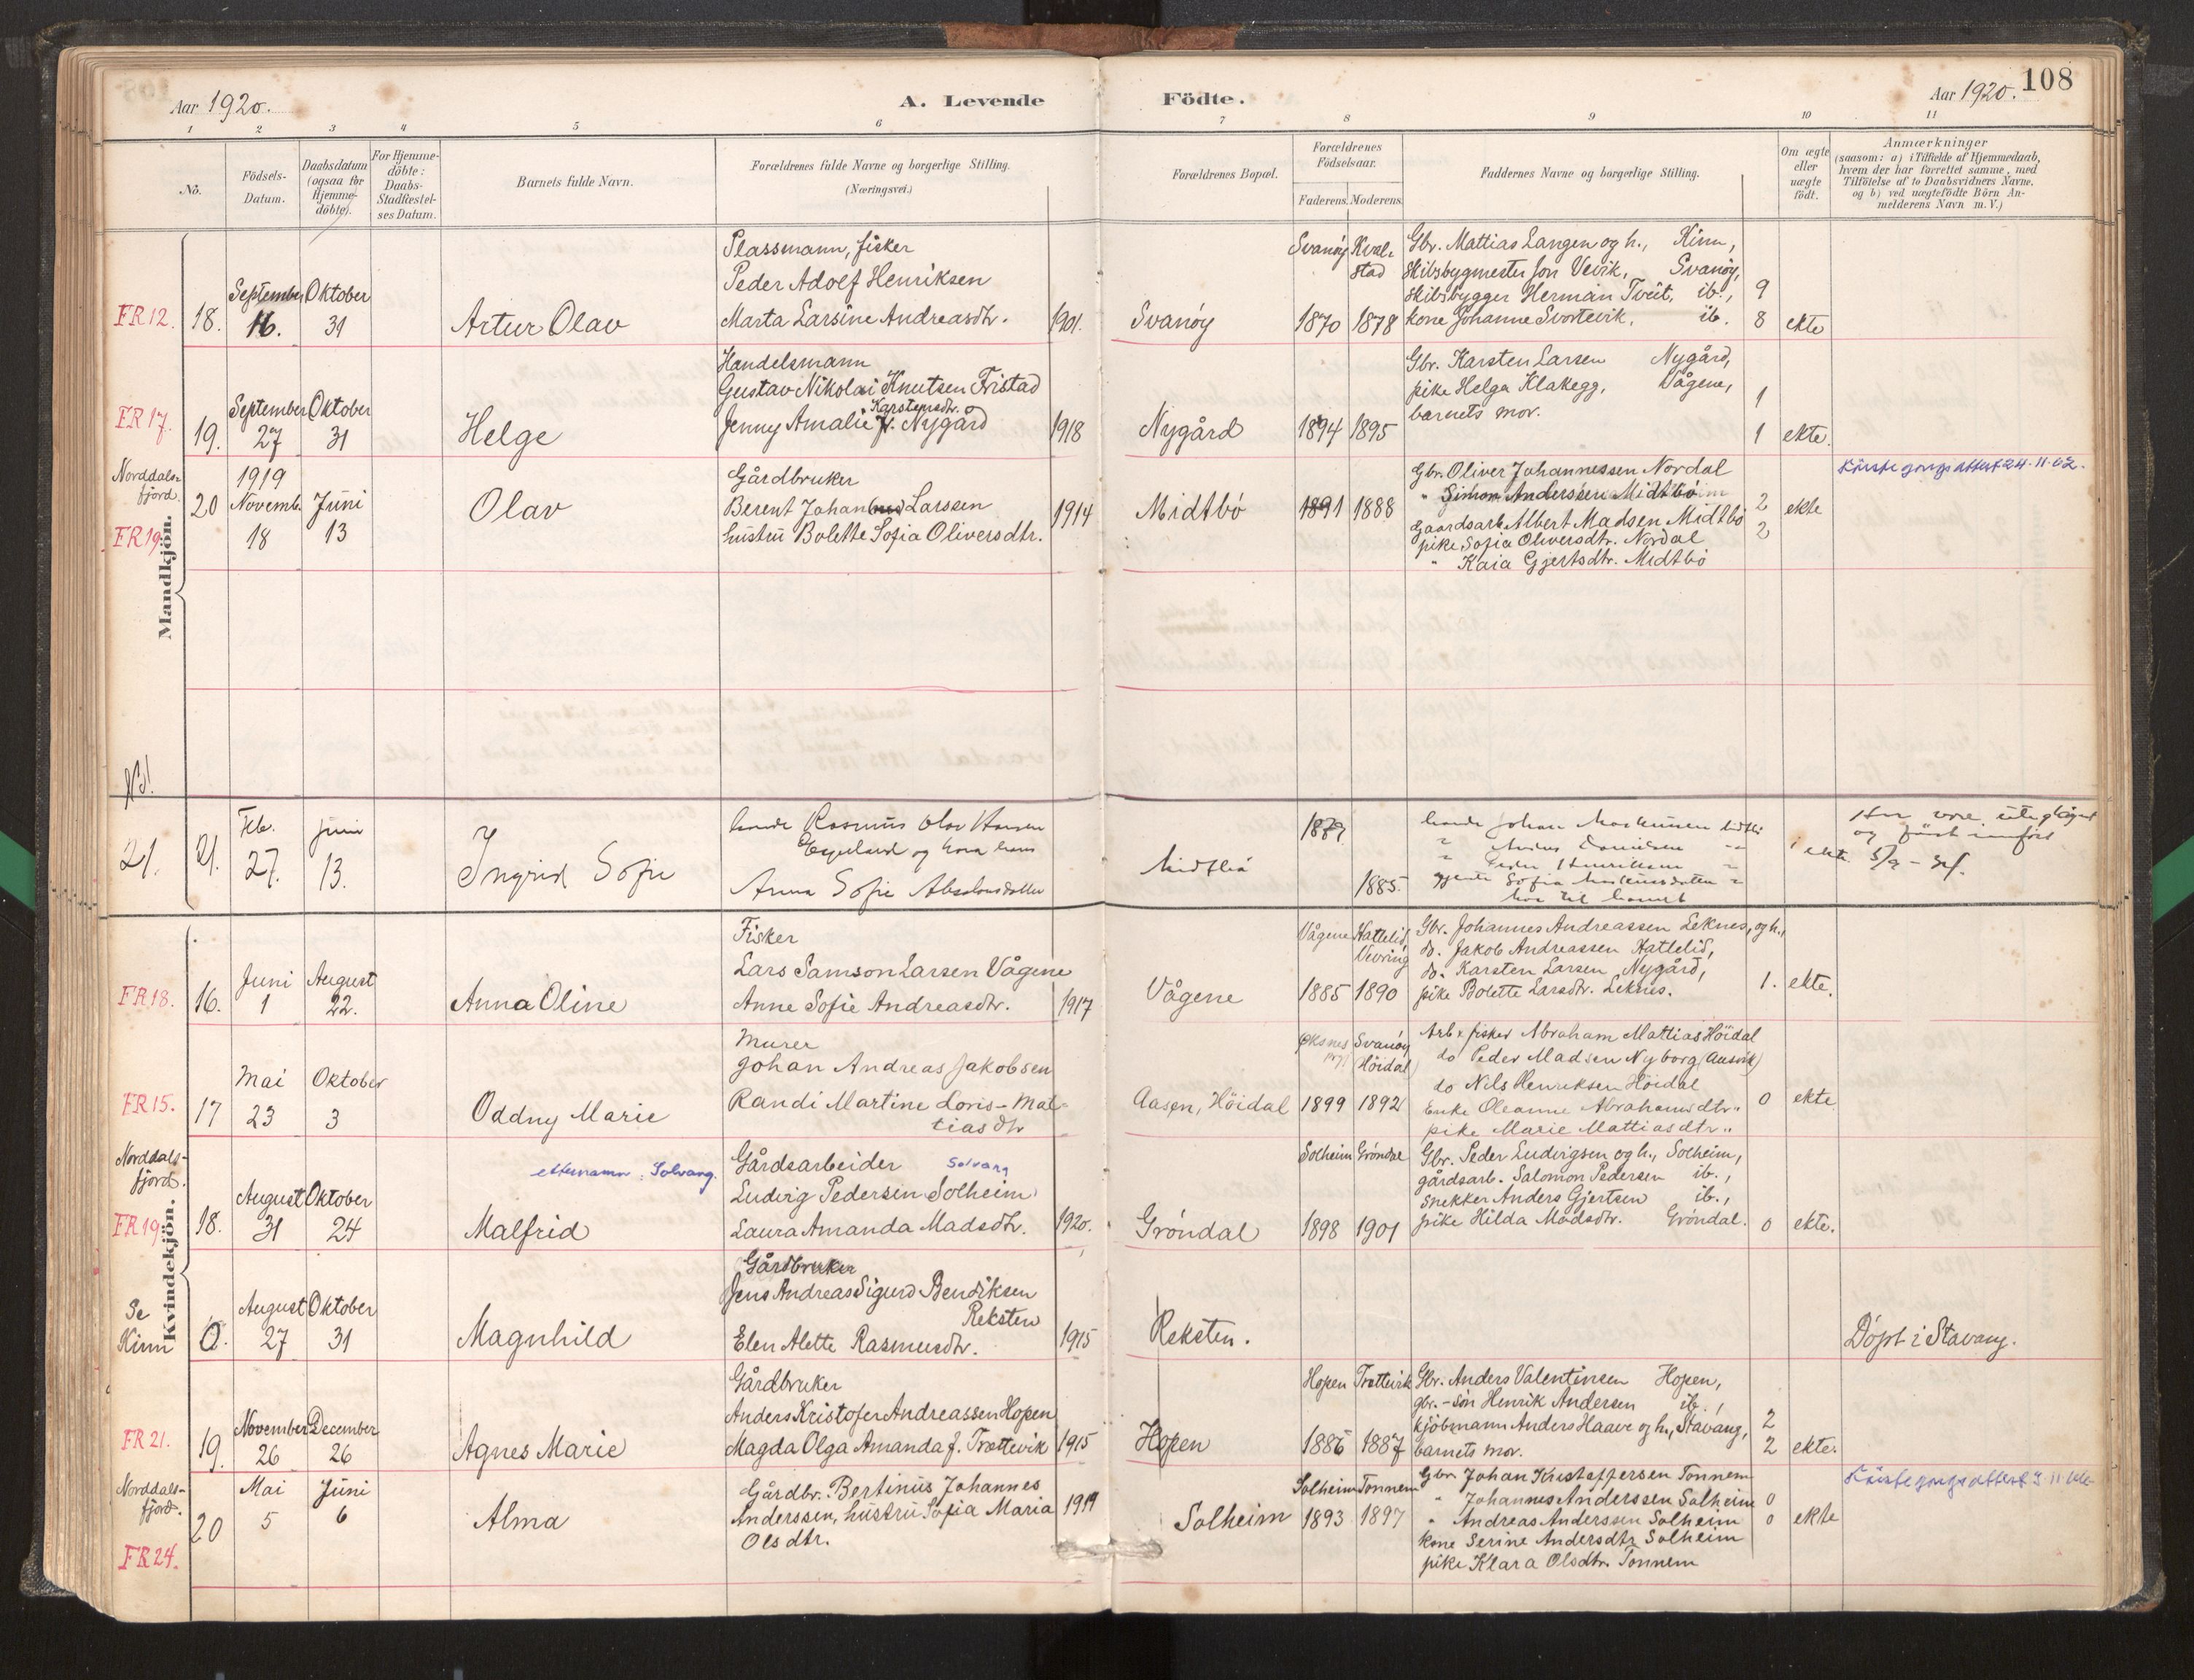 Aar 1920.
A. Levende Födte.
Aar 1920. 108
1 2 3 4 5 6 7 8 9 10 11
No.
Födsels-
Datum.
Daabsdatum
(ogsaa for
Hjemme-
döbte).
For Hjemme-
döbte:
Daabs-
Stadfæstel-
ses Datum.
Barnets fulde Navn.
Forældrenes fulde Navne og borgerlige Stilling.
(Næringsvei.)
Forældrenes Bopæl.
Forældrenes
Födselsaar.
Faderens. Moderens.
Faddernes Navne og borgerlige Stilling.
Om ægte
eller
uægte
födt.
Anmærkninger
(saasom: a) i Tilfælde af Hjemmedaab,
hvem der har forrettet samme, med
Tilföielse af to Daabsvidners Navne,
og b) ved uægtefödte Börn An-
melderens Navn m. V.)
Mandkjön.
FR 12.
18.
September
16.
Oktober
31
Artur Olav
Plassmann, fisker
Peder Adolf Henriksen
Marta Larsine Andreasdtr.
1901.
Svanöy
Svanöy
1870
Kvel-
stad
1878
Gbr. Mattias Langen og h., Kinn,
skibsbygmester Jon Vevik, Svanöy,
skibsbygger Herman Tveit, ib.,
kone Johanne Svortevik, ib.
9
8
ekte
FR 17.
19.
September
27
Oktober
31
Helge
Handelsmann
Gustav Nikolai Knutsen Fristad
Karstensdtr.
Jenny Amalie f. Nygård
1918
Nygård
1894 1895
Gbr. Karsten Larsen Nygård,
pike Helga Klakegg, Vågene,
barnets mor.
1
1
ekte.
Norddals-
fjord.
FR 19.
20
1919
Novemb.
18
Juni
13
Olav
Gårdbruker
Berent Johan Larssen
hustru Bolette Sofia Oliversdtr.
1914
Midtbö
1891 1888
Gbr. Oliver Johannessen Nordal
" Simon Anderssen Midtbö
Gaardsarb. Albert Madsen Midtbö
pike Sofia Oliversdtr. Nordal
" Kaia Gjertsdtr. Midtbö
2
2
ekte
24.11.62.
NB!
21.
21.
Feb.
27.
Juni
13.
Ingrid Sofie
Rasmus Olav Hansen
og kona hans
Anna Sofie Absalonsdatter
1879
1885.
Johan
ekte
Kvindekjön.
FR 18.
16.
Juni
1
August
22.
Anna Oline
Fisker
Lars Samson Larsen Vågene
Anne Sofie Andreasdtr.
1917
Vågene
Vågene
1885
Hattelid,
Vevring
1890
Gbr. Johannes Andreassen Leknes, og h.,
do. Jakob Andreassen Hattelid,
do. Karsten Larsen Nygård,
pike Bolette Larsdtr. Leknes.
1.
ekte.
FR 15.
17
Mai
23
Oktober
3
Oddny Marie
Murer
Johan Andreas Jakobsen
Randi Martine Loris-Mat-
tiasdtr
Aasen, Höidal
Øksnes
prgj.
1899
Svanöy
(Höidal)
1892
Arb. & fisker Abraham Mattias Höidal
do Peder Madsen Nyborg (Ausvik)
do Nils Henriksen Höidal
Enke Oleanne Abrahamsdtr "
pike Marie Mattiasdtr "
0
ekte
Norddals-
fjord.
FR 19.
18.
August
31
Oktober
24
etternamn: Solvang.
Malfrid
Gårdsarbeider Solvang
Ludvig Pedersen Solheim
Laura Amanda Madsdtr.
1920.
Gröndal
Solheim
1898
Gröndal
1901
Gbr. Peder Ludvigsen og h., Solheim,
gårdsarb. Salomon Pedersen ib.,
snekker Anders Gjertsen ib.,
pike Hilda Madsdtr. Gröndal.
0
ekte.
Se
Kinn
0.
August
27
Oktober
31
Magnhild
Gårdbruker
Jens Andreas Sigurd Bendiksen
Reksten
Elen Alette Rasmusdtr.
1915
Reksten.
Döpt i Stavang.
FR 21.
19.
November
26
December
26
Agnes Marie
Gårdbruker
Anders Kristofer Andreassen Hopen
Magda Olga Amanda f. Trættevik
1915
Hopen
Hopen
1886
Trættevik
1887
Gbr. Anders Valentinsen Hopen,
gbr.-sön Henrik Andersen ib.,
kjöbmann Anders Haave og h., Stavang,
barnets mor.
2
2
ekte.
Norddals-
fjord.
FR 24.
20
Mai
5
Juni
6
Alma
Gårdbr. Bertinus Johannes
Anderssen, hustru Sofia Maria
Olsdtr.
1919
Solheim
Solheim
1893
Tonnem
1897
Gbr. Johan Kristoffersen Tonnem
" Johannes Anderssen Solheim
" Andreas Anderssen Solheim
kone Serine Andersdtr Solheim
pike Klara Olsdtr. Tonnem
0
0
ekte